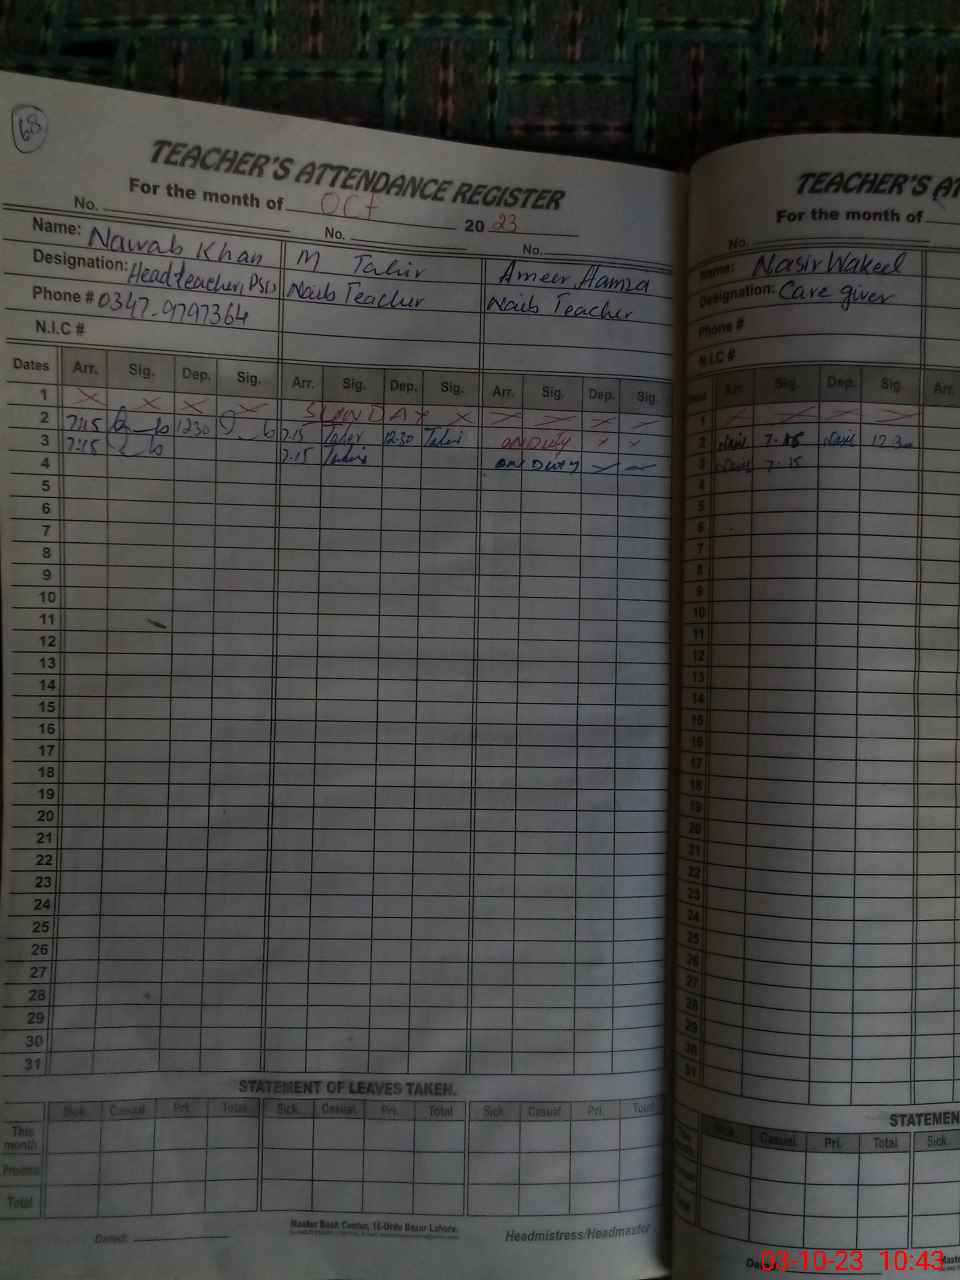 68
TEACHER'S ATTENDANCE REGISTER
For the month of Oct 2023
No. No. No.
Name: Nawab Khan M Tahir Ameer Hamza
Designation: Headteacher, Naib Teacher Naib Teacher
Phone # 0347-9797364
N.I.C #
Dates Arr. Sig. Dep. Sig. Arr. Sig. Dep. Sig. Arr. Sig. Dep. Sig.
1 x x x x SUNDAY x x x x x
2 7:15 12:30 7.15 Tahir 12:30 Tahir ON DUTY x x
3 7:15 7.15 Tahir ON DUTY
4
5
6
7
8
9
10
11
12
13
14
15
16
17
18
19
20
21
22
23
24
25
26
27
28
29
30
31
STATEMENT OF LEAVES TAKEN.
Sick. Casual. Pri. Total Sick. Casual. Pri. Total Sick. Casual Pri. Total
This month
Previous
Total
Dated:
Master Book Center, 16-Urdu Bazar Lahore.
Headmistress/Headmaster
TEACHER'S AT
For the month of
No.
Name: Nasir Wakeel
Designation: Care giver
Phone #
N.I.C #
Arr. Sig. Dep. Sig. Arr.
1
2 Nasir 7.15 Nasir 12.30
3 7.15
4
5
6
7
8
9
10
11
12
13
14
15
16
17
18
19
20
21
22
23
24
25
26
27
28
29
30
31
STATEMEN
Casual. Pri. Total Sick.
03-10-23 10:43